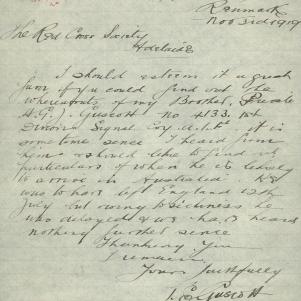 Renmark
Nov 3rd 1919
The Red Cross Society
Adelaide
I should esteem it a great
favor if you could find out the
whereabouts of my Brother, Private
H.G.J. Guscott no 4133, 1st
Division Signal Coy it is
some time sence I heard from
him & should like to find out
particulars of when he is likely
to arrive in Australia he
was to have left England 12th
July but owing to sickness he
was delayed & we have heard
nothing further sence
Thanking You
I remain
Yours faithfully
Guscott